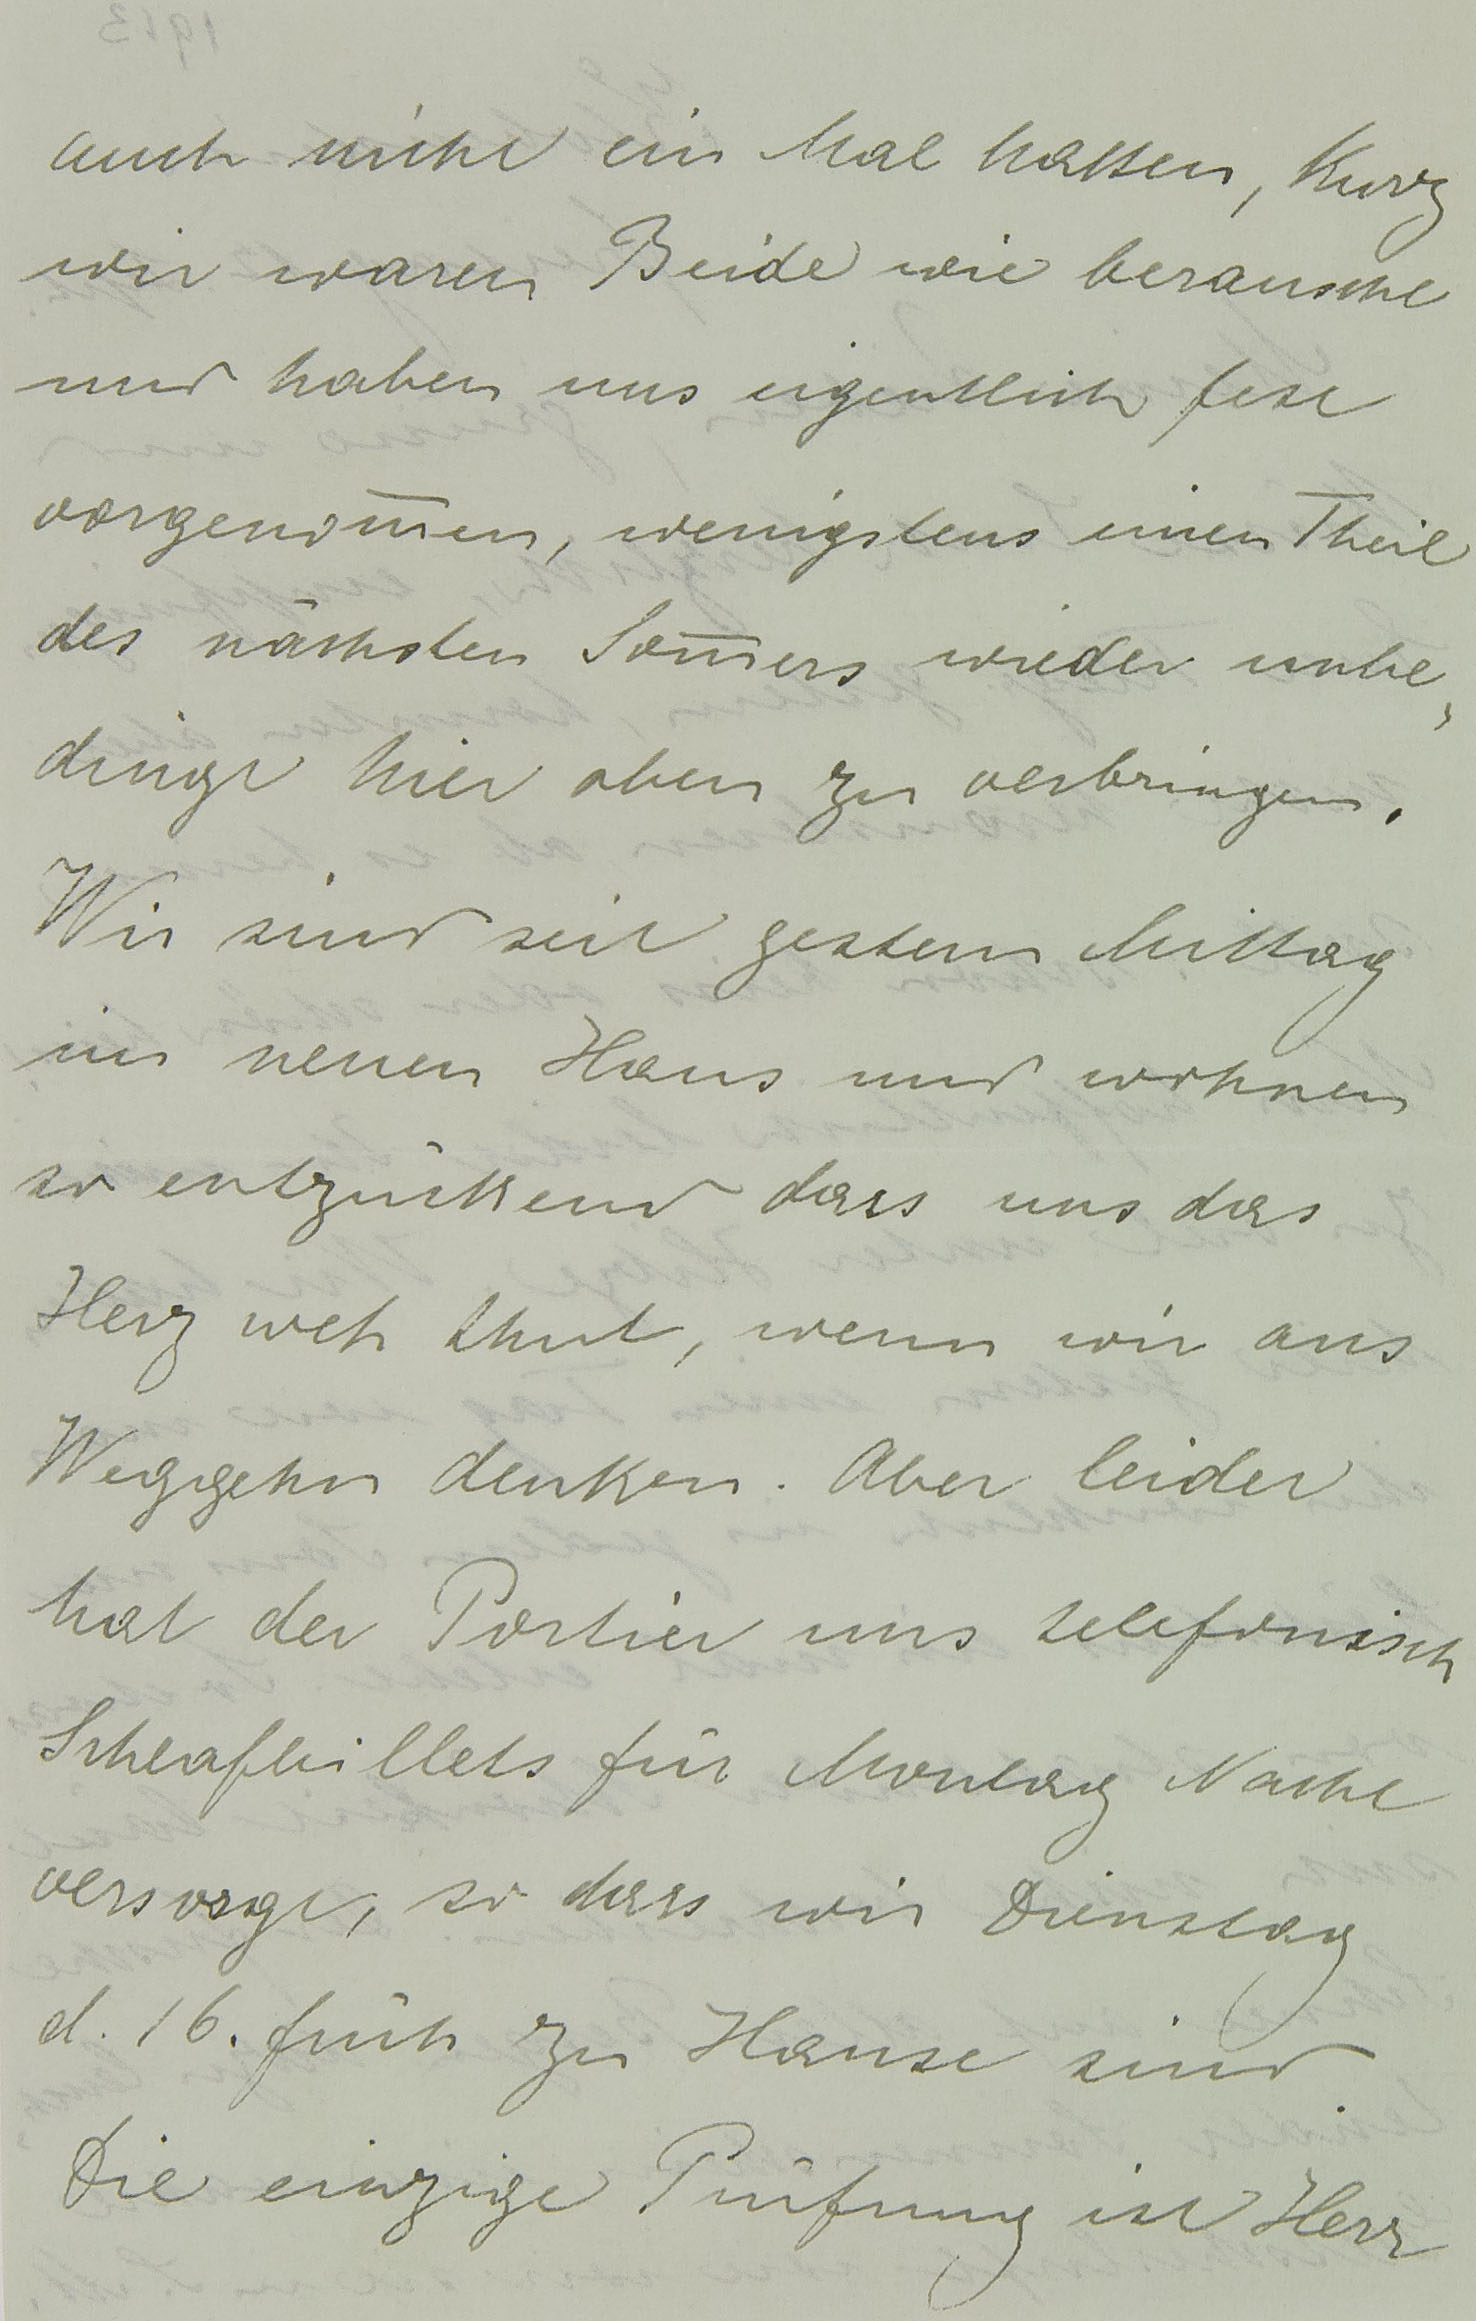 auch nicht ein Mal hatten, Kurz
wir waren Beide wie berauscht
und haben uns eigentlich fest
vorgenom̅en, wenigstens einen Theil
des nächsten Som̅ers wieder unbe,
dingt hier oben zu verbringen.
Wir sind seit gestern Mittag
im neuen Haus und wohnen
so entzückend dass uns das
Herz weh thut, wenn wir ans
Weggehn denken. Aber leider
hat der Portier uns telefonisch
Schlafbillets für Montag Nacht
versorgt, so dass wir Dienstag
d. 16. früh zu Hause sind
Die einzige Prüfung ist Herr